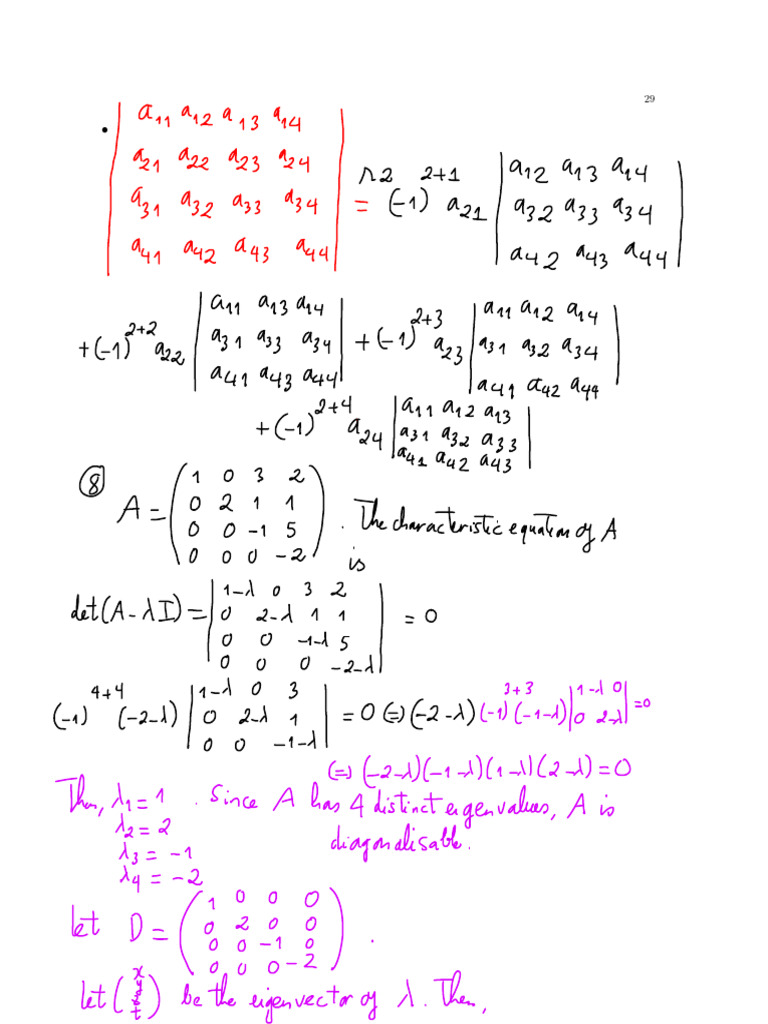 29
• | a11 a12 a13 a14 |
| a21 a22 a23 a24 |
| a31 a32 a33 a34 |
| a41 a42 a43 a44 | = r2 (-1)^{2+1} a21 | a12 a13 a14 |
| a32 a33 a34 |
| a42 a43 a44 |
+(-1)^{2+2} a22 | a11 a13 a14 |
| a31 a33 a34 |
| a41 a43 a44 | +(-1)^{2+3} a23 | a11 a12 a14 |
| a31 a32 a34 |
| a41 a42 a44 |
+(-1)^{2+4} a24 | a11 a12 a13 |
| a31 a32 a33 |
| a41 a42 a43 |
⑧ A = ( 1 0 3 2
0 2 1 1
0 0 -1 5
0 0 0 -2 ) . The characteristic equation of A
is
det(A-λI) = | 1-λ 0 3 2 |
| 0 2-λ 1 1 |
| 0 0 -1-λ 5 |
| 0 0 0 -2-λ | = 0
(-1)^{4+4} (-2-λ) | 1-λ 0 3 |
| 0 2-λ 1 |
| 0 0 -1-λ | = 0 (=) (-2-λ) (-1)^{3+3} (-1-λ) | 1-λ 0 |
| 0 2-λ | =0
(=) (-2-λ)(-1-λ)(1-λ)(2-λ)=0
Then, λ1 = 1 . Since A has 4 distinct eigenvalues, A is
λ2 = 2 diagonalisable.
λ3 = -1
λ4 = -2
let D = ( 1 0 0 0
0 2 0 0
0 0 -1 0
0 0 0 -2 ) .
let ( x y z t ) be the eigenvector of λ. Then,